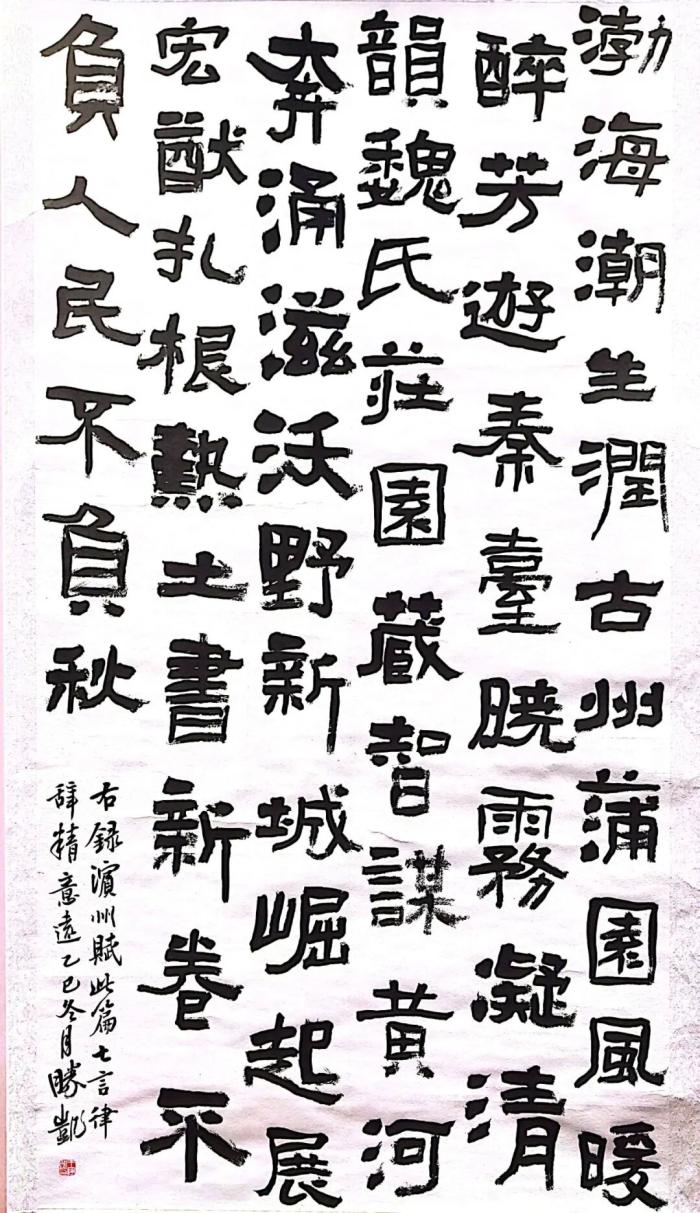 渤海潮生潤古州蒲園風暖
醉芳遊秦臺曉霧凝清
韻魏氏莊園蔵智謀黄河
奔涌滋沃野新城崛起展
宏猷扎根熱土書新卷不
負人民不負秋
右録濱州賦此篇七言律
辞精意遠乙巳冬月勝凱